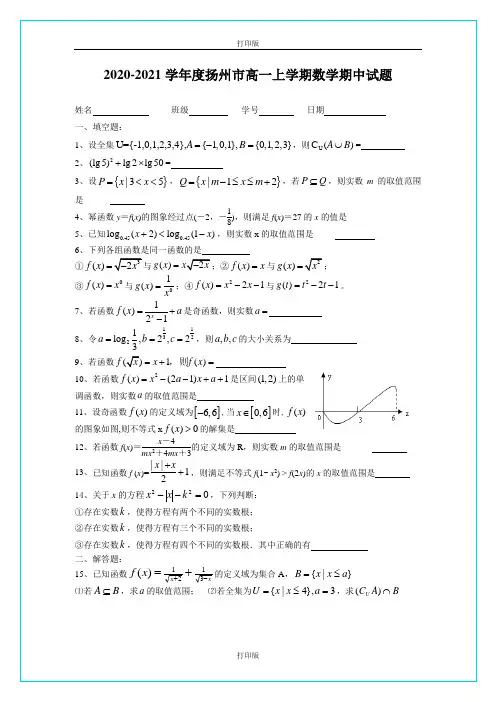 打印版
2020-2021 学年度扬州市高一上学期数学期中试题
姓名 班级 学号 日期
一、填空题:
1、设全集U={-1,0,1,2,3,4},A={−1,0,1},B={0,1,2,3},则C_U(A∪B) =
2、(lg5)²+lg2×lg50=
3、设P={x|3<x<5},Q={x|m−1≤x≤m+2},若P⊆Q,则实数 m 的取值范围
是
4、幂函数 y=f(x)的图象经过点(-2,-1/8),则满足 f(x)=27 的 x 的值是
5、已知log_0.45(x+2)<log_0.45(1−x),则实数 x 的取值范围是
6、下列各组函数是同一函数的是
①f(x)=√(−2x³)与g(x)=x√(−2x);②f(x)=x与g(x)=√(x²);
③f(x)=x⁰与g(x)=1/x⁰;④f(x)=x²−2x−1与g(t)=t²−2t−1。
7、若函数f(x)=1/(2^x−1)+a是奇函数,则实数a=
8、令a=log₂(1/3),b=2^(1/3),c=2^(1/2),则a,b,c的大小关系为
9、若函数f(√x)=x+1,则f(x)=
10、若函数f(x)=x²−(2a−1)x+a+1是区间(1,2)上的单
调函数,则实数a的取值范围是
11、设奇函数f(x)的定义域为[−6,6],当x∈[0,6]时,f(x)
的图象如图,则不等式 x f(x)>0的解集是
y
O
3
6
x
12、若函数 f(x)=(x-4)/(mx²+4mx+3)的定义域为 R,则实数 m 的取值范围是
13、已知函数 f (x)=(|x|+x)/2+1,则满足不等式 f(1- x²) > f(2x)的 x 的取值范围是
14、关于x的方程x²−|x|−k²=0,下列判断:
①存在实数k,使得方程有两个不同的实数根;
②存在实数k,使得方程有三个不同的实数根;
③存在实数k,使得方程有四个不同的实数根.其中正确的有
二、解答题:
15、已知函数f(x)=1/√(x+2)+1/√(3−x)的定义域为集合 A,B={x|x≤a}
⑴若A⊆B,求a的取值范围; ⑵若全集为U={x|x≤4},a=3,求(C_U A)∩B
打印版